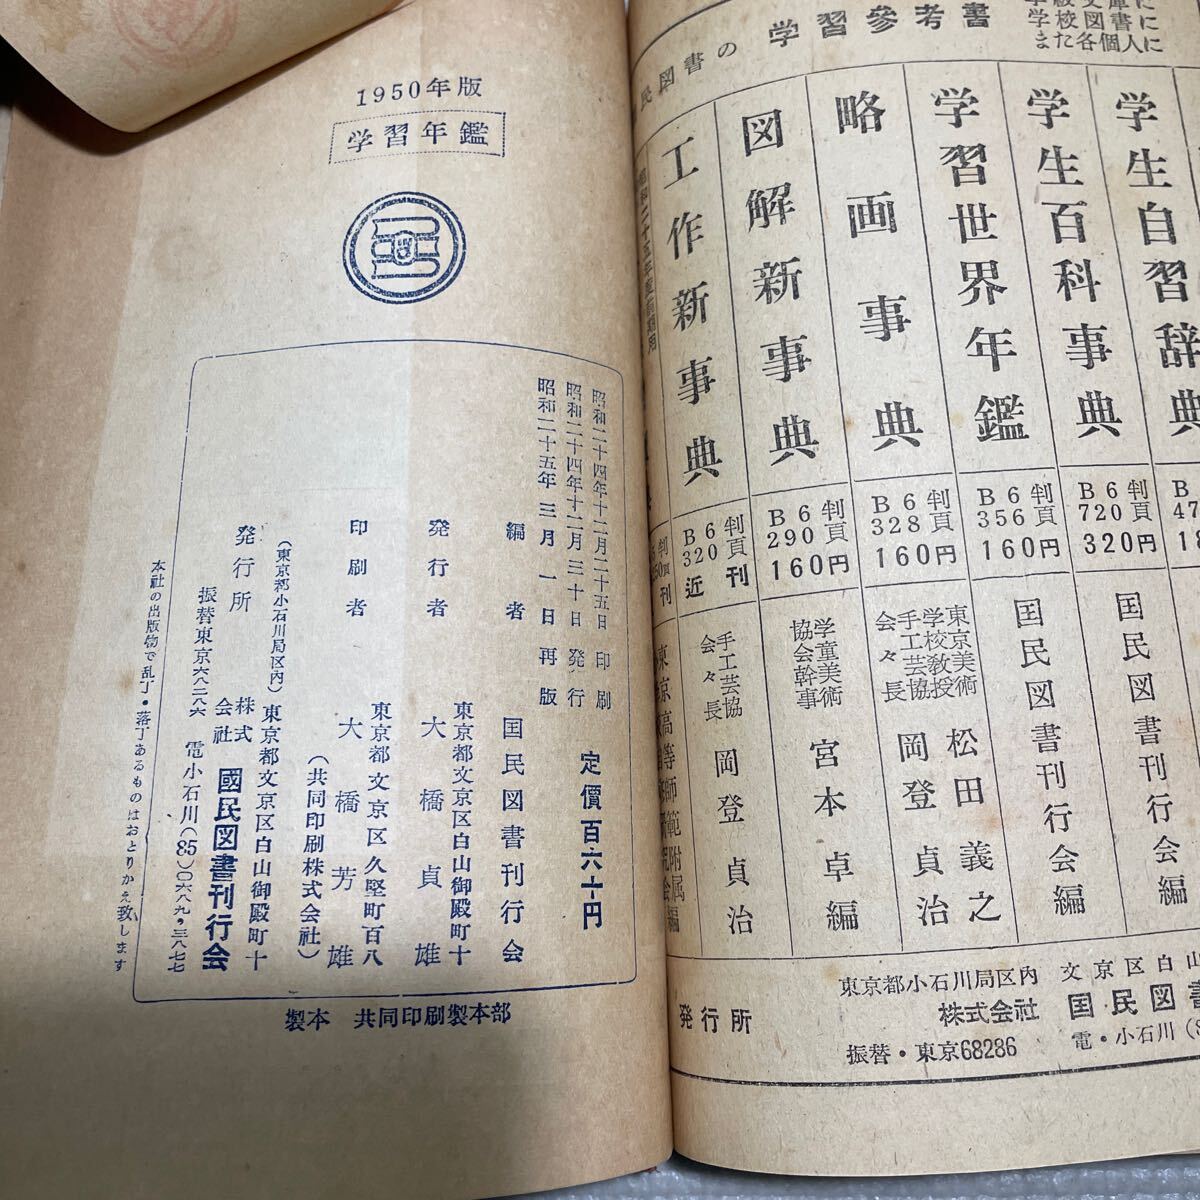 1950年版
学習年鑑
昭和二十四年十二月二十五日 印刷
昭和二十四年十二月三十日 発行
昭和二十五年三月一日再版
定價百六十円
編者 国民図書刊行会
東京都文京区白山御殿町十
発行者 大橋貞雄
東京都文京区久堅町百八
印刷者 大橋芳雄
(共同印刷株式会社)
(東京都小石川局区内)東京都文京区白山御殿町十
発行所 株式会社 國民図書刊行会
振替東京六八二八六 電小石川(85)〇六八九・三八七七
本社の出版物で乱丁・落丁あるものはおとりかえ致します
製本 共同印刷製本部
文庫に
学校図書に
また各個人に
民図書の 学習参考書
学生自習辞典
学生百科事典 B6判 720頁 320円 国民図書刊行会編
学習世界年鑑 B6判 356頁 160円 国民図書刊行会編
略画事典 B6判 328頁 160円 東京美術学校教授 松田義之 手工芸協会々長 岡登貞治
図解新事典 B6判 290頁 160円 学童美術協会幹事 宮本卓編
工作新事典 B6判 320頁 近刊 手工芸協会々長 岡登貞治
発行所
東京都小石川局区内 文京区白山
株式会社 国民図書
振替・東京68286 電・小石川